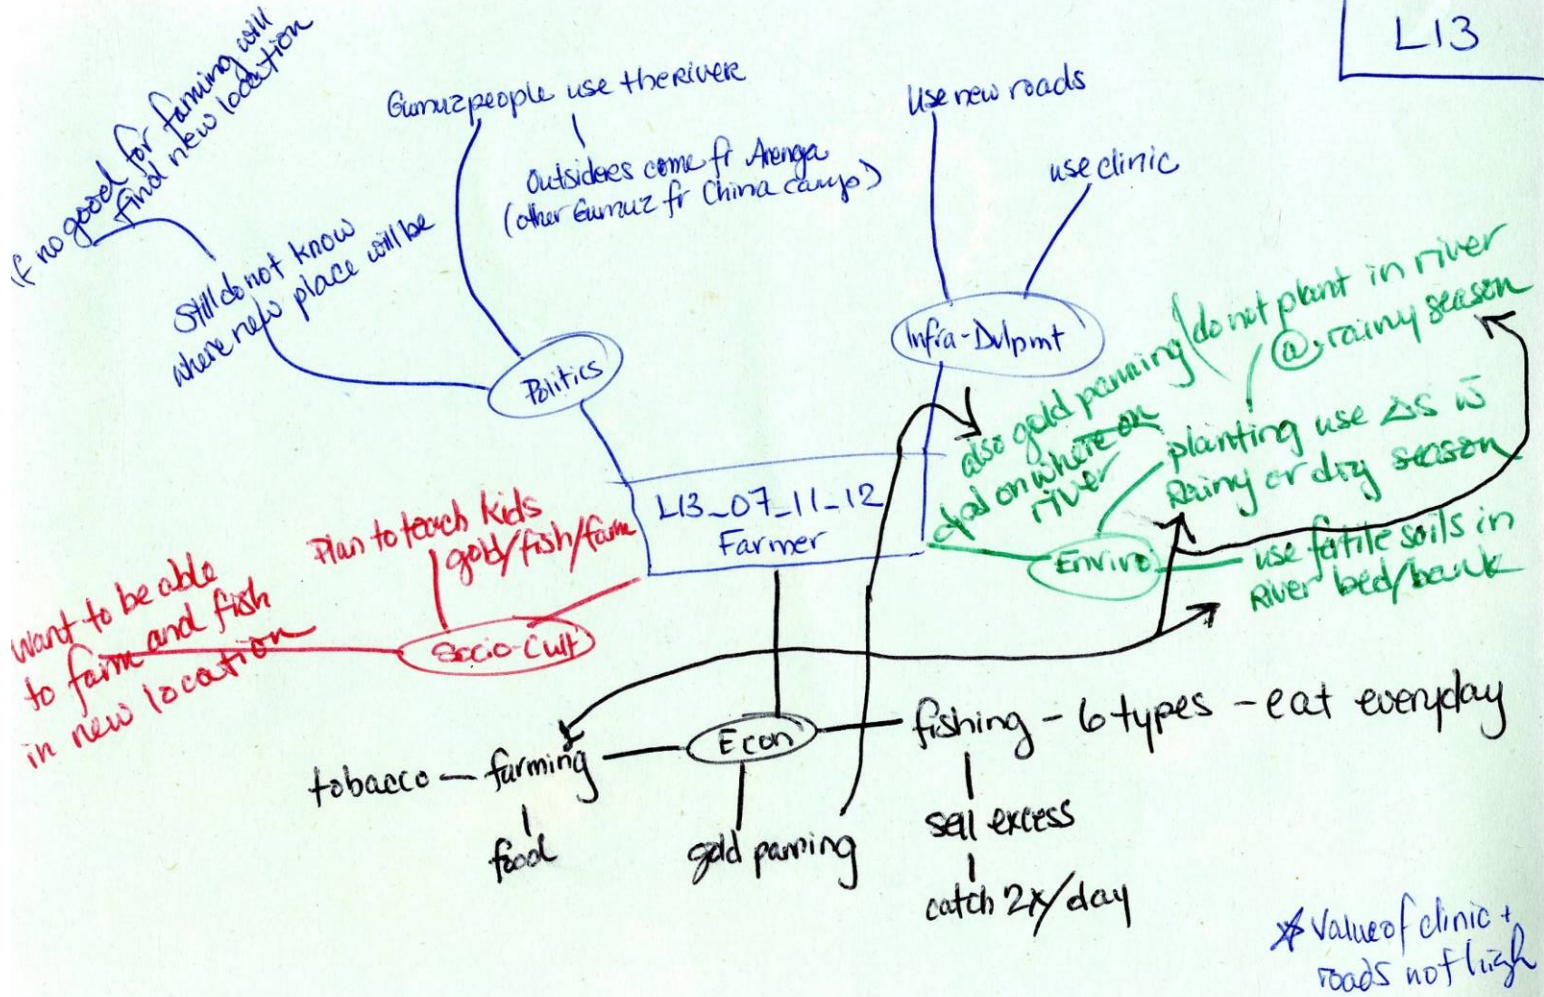 L13
If no good for farming will
find new location
Still do not know
where new place will be
Gumuz people use the River
outsiders come fr Arenga
(other Gumuz fr China camp)
Use new roads
use clinic
Politics
Infra-Dvlpmt
do not plant in river
@ rainy season
also gold panning
dpd on where on
river
planting use Δs w̄
Rainy or dry season
Enviro
use fertile soils in
River bed/bank
L13_07_11_12
Farmer
Plan to teach kids
gold/fish/farm
Want to be able
to farm and fish
in new location
Socio-Cult
Econ
tobacco — farming
food
gold panning
fishing - 6 types - eat everyday
sell excess
catch 2x/day
* Value of clinic +
roads not high